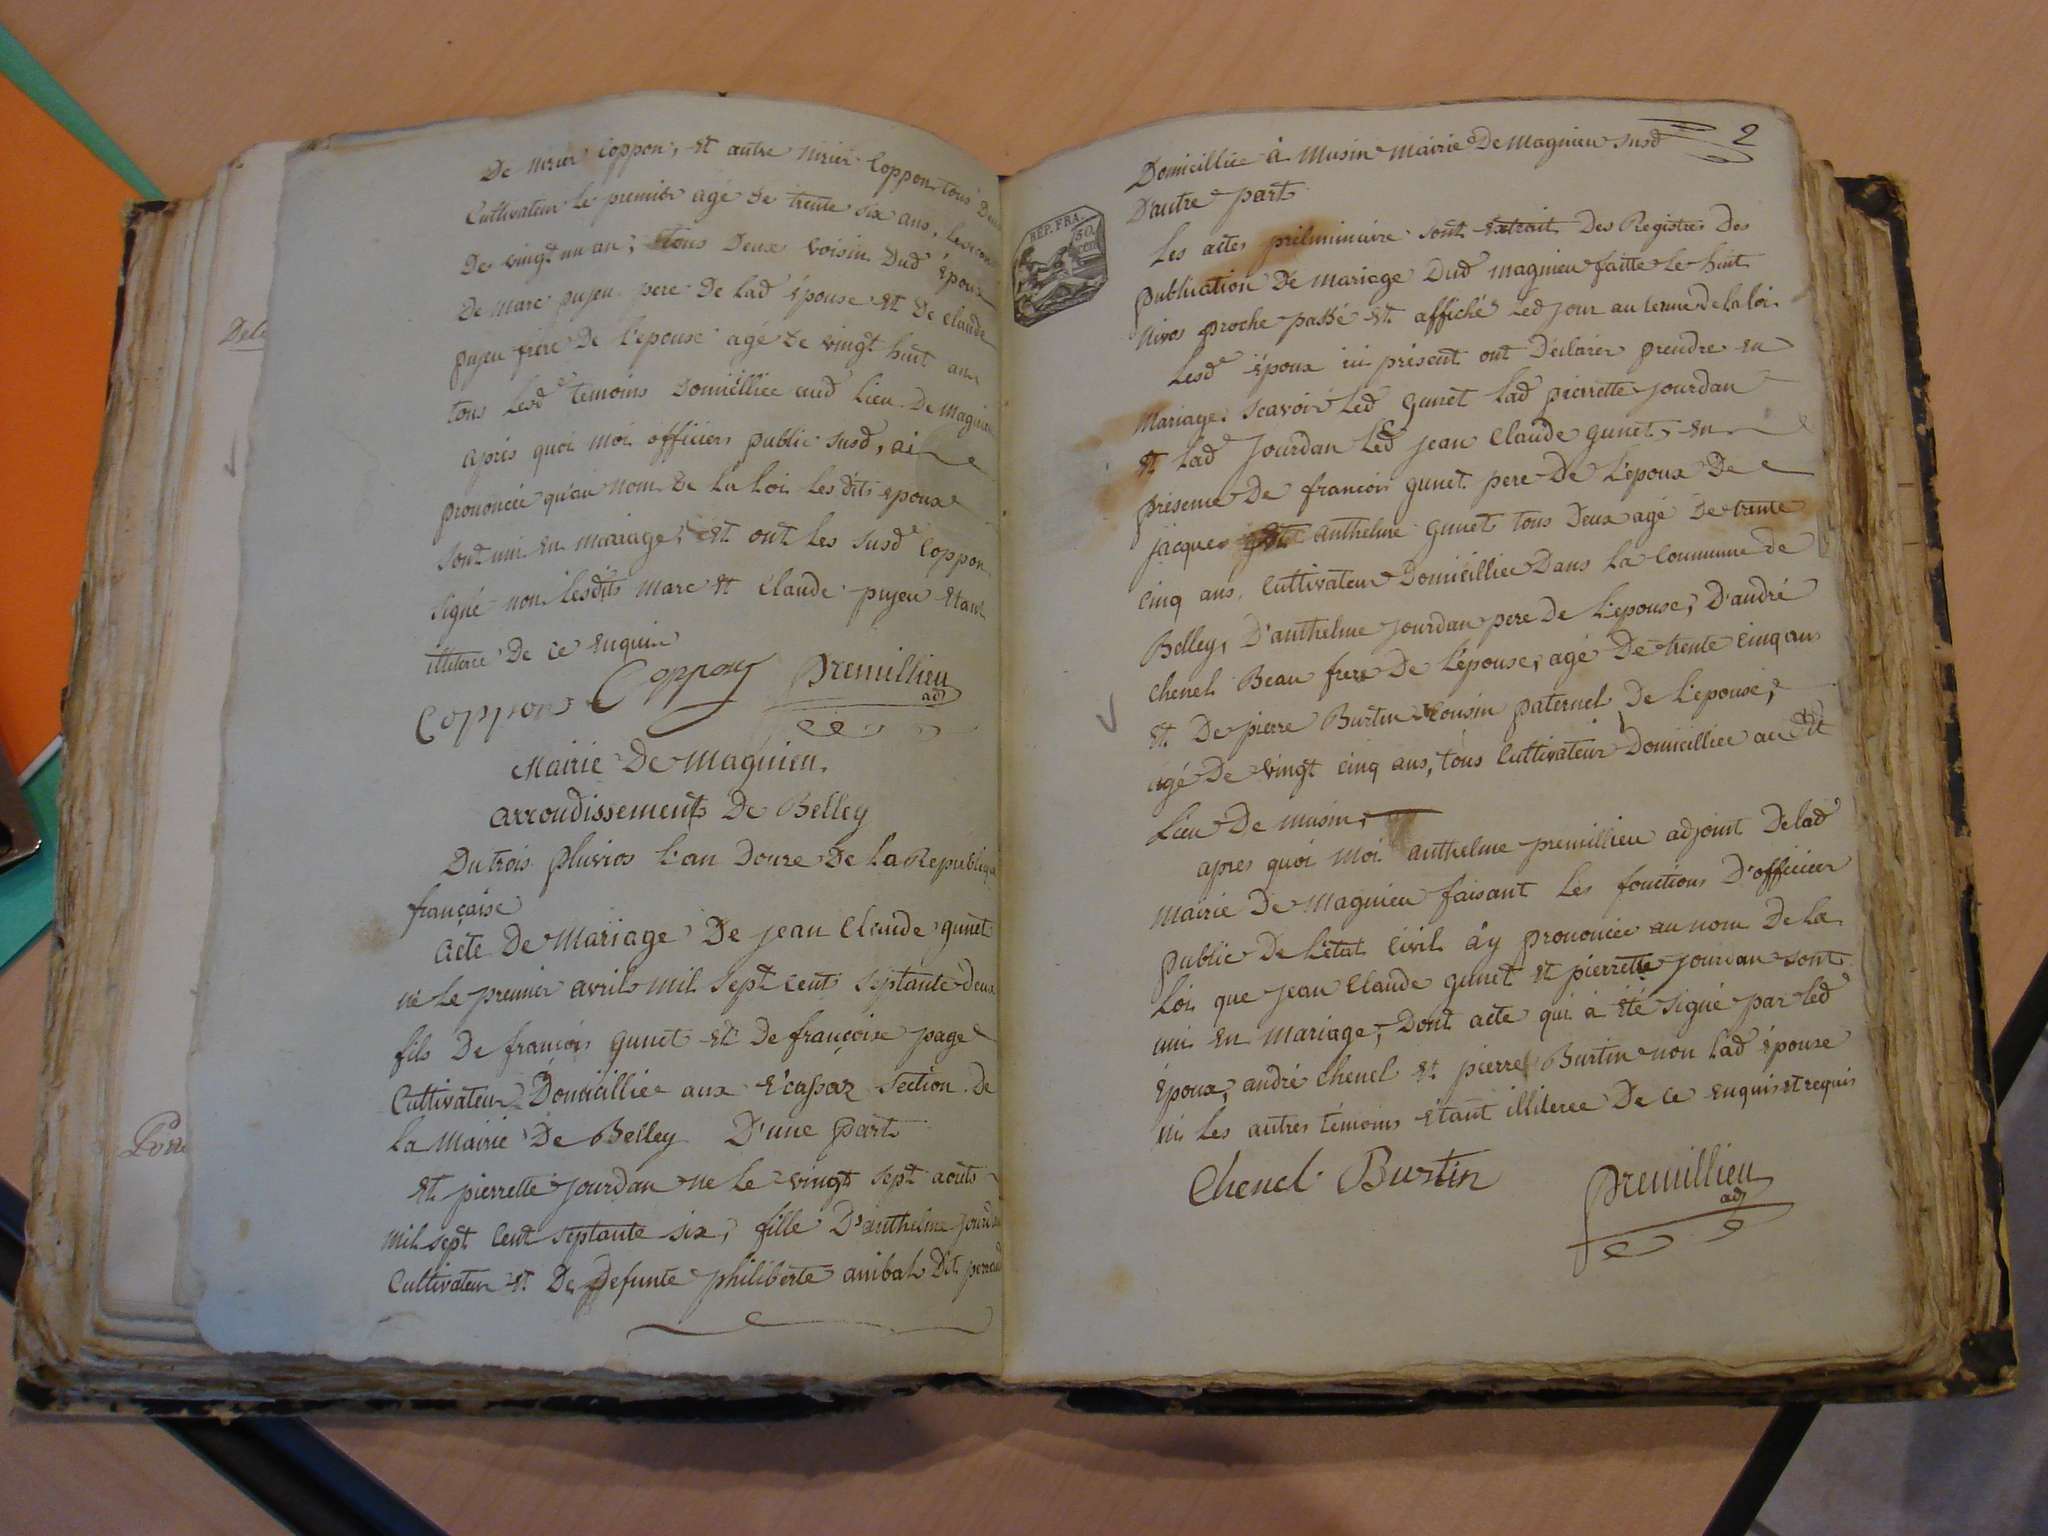 De nizier Coppon, et autre nizier Coppon tous Deux
Cultivateur le premier agé de trente six ans, le second
De vingt un an; tous Deux voisin Dud époux
De marc pujeu pere De lad épouse et De claude
pujeu frere De l'epouse agé de vingt huit ans
tous lesd temoins Domicilliée aud lieu De Magnieu
après quoi moi officier public susd, ai
prononcée qu'au nom De la loi les dits epoux
sont uni en mariage, et ont les susd Coppon
signé non lesdits marc et Claude pujeu etant
illiterée De ce enquis
Coppons Coppon Premillieu
adj
Mairie De Magnieu
arrondissement De Belley
Du trois pluvios l'an Douze De la Republique
française
acte De Mariage De jean Claude gunet
né le premier avril mil sept cent septante deux
fils De françois gunet et De françoise page
Cultivateur Domicilliée aux ecassaz section De
la Mairie De Belley D'une part
et pierrette jourdan ne le vingt sept aoûts
mil sept cent septante six, fille D'anthelme jourdan
Cultivateur et De Defunte philiberte anibal Dit
Dele
2
Domicilliée à Musin mairie De Magnieu susd
D'autre part
Les actes préliminaire sont extrait Des Registres Des
publication De mariage Dud magnieu faitte le huit
nivos proche passé et affiché led jour au terme de la loi
Lesd époux ici présent ont Déclarer prendre en
Mariage, scavoir led gunet lad pierrette jourdan
et lad Jourdan led jean Claude gunet, en
présence De francois gunet pere De L'époux De
jacques et anthelme gunet tous Deux agé De trente
cinq ans, Cultivateur Domicilliée Dans la Commune de
Belley, D'anthelme jourdan pere De L'epouse, D'andré
Chenel Beau frere De L'épouse, agé De trente cinq ans
et De pierre Burtin Cousin paternel De L'epouse,
agé De vingt cinq ans, tous Cultivateur Domicilliée au dit
Lieu De musin,
apres quoi moi anthelme premillieu adjoint De lad
mairie De Magnieu faisant les fonctions D'officier
public De L'état Civil ay prononcée au nom De la
loi que jean Claude gunet et pierrette jourdan sont
uni en mariage, Dont acte qui a été signé par led
époux, andré chenel et pierre Burtin non lad épouse
ni les autres témoins étant illiterée De ce enquis et requis
Chenel Burtin Premillieu
adj
REP. FRA.
50
cent